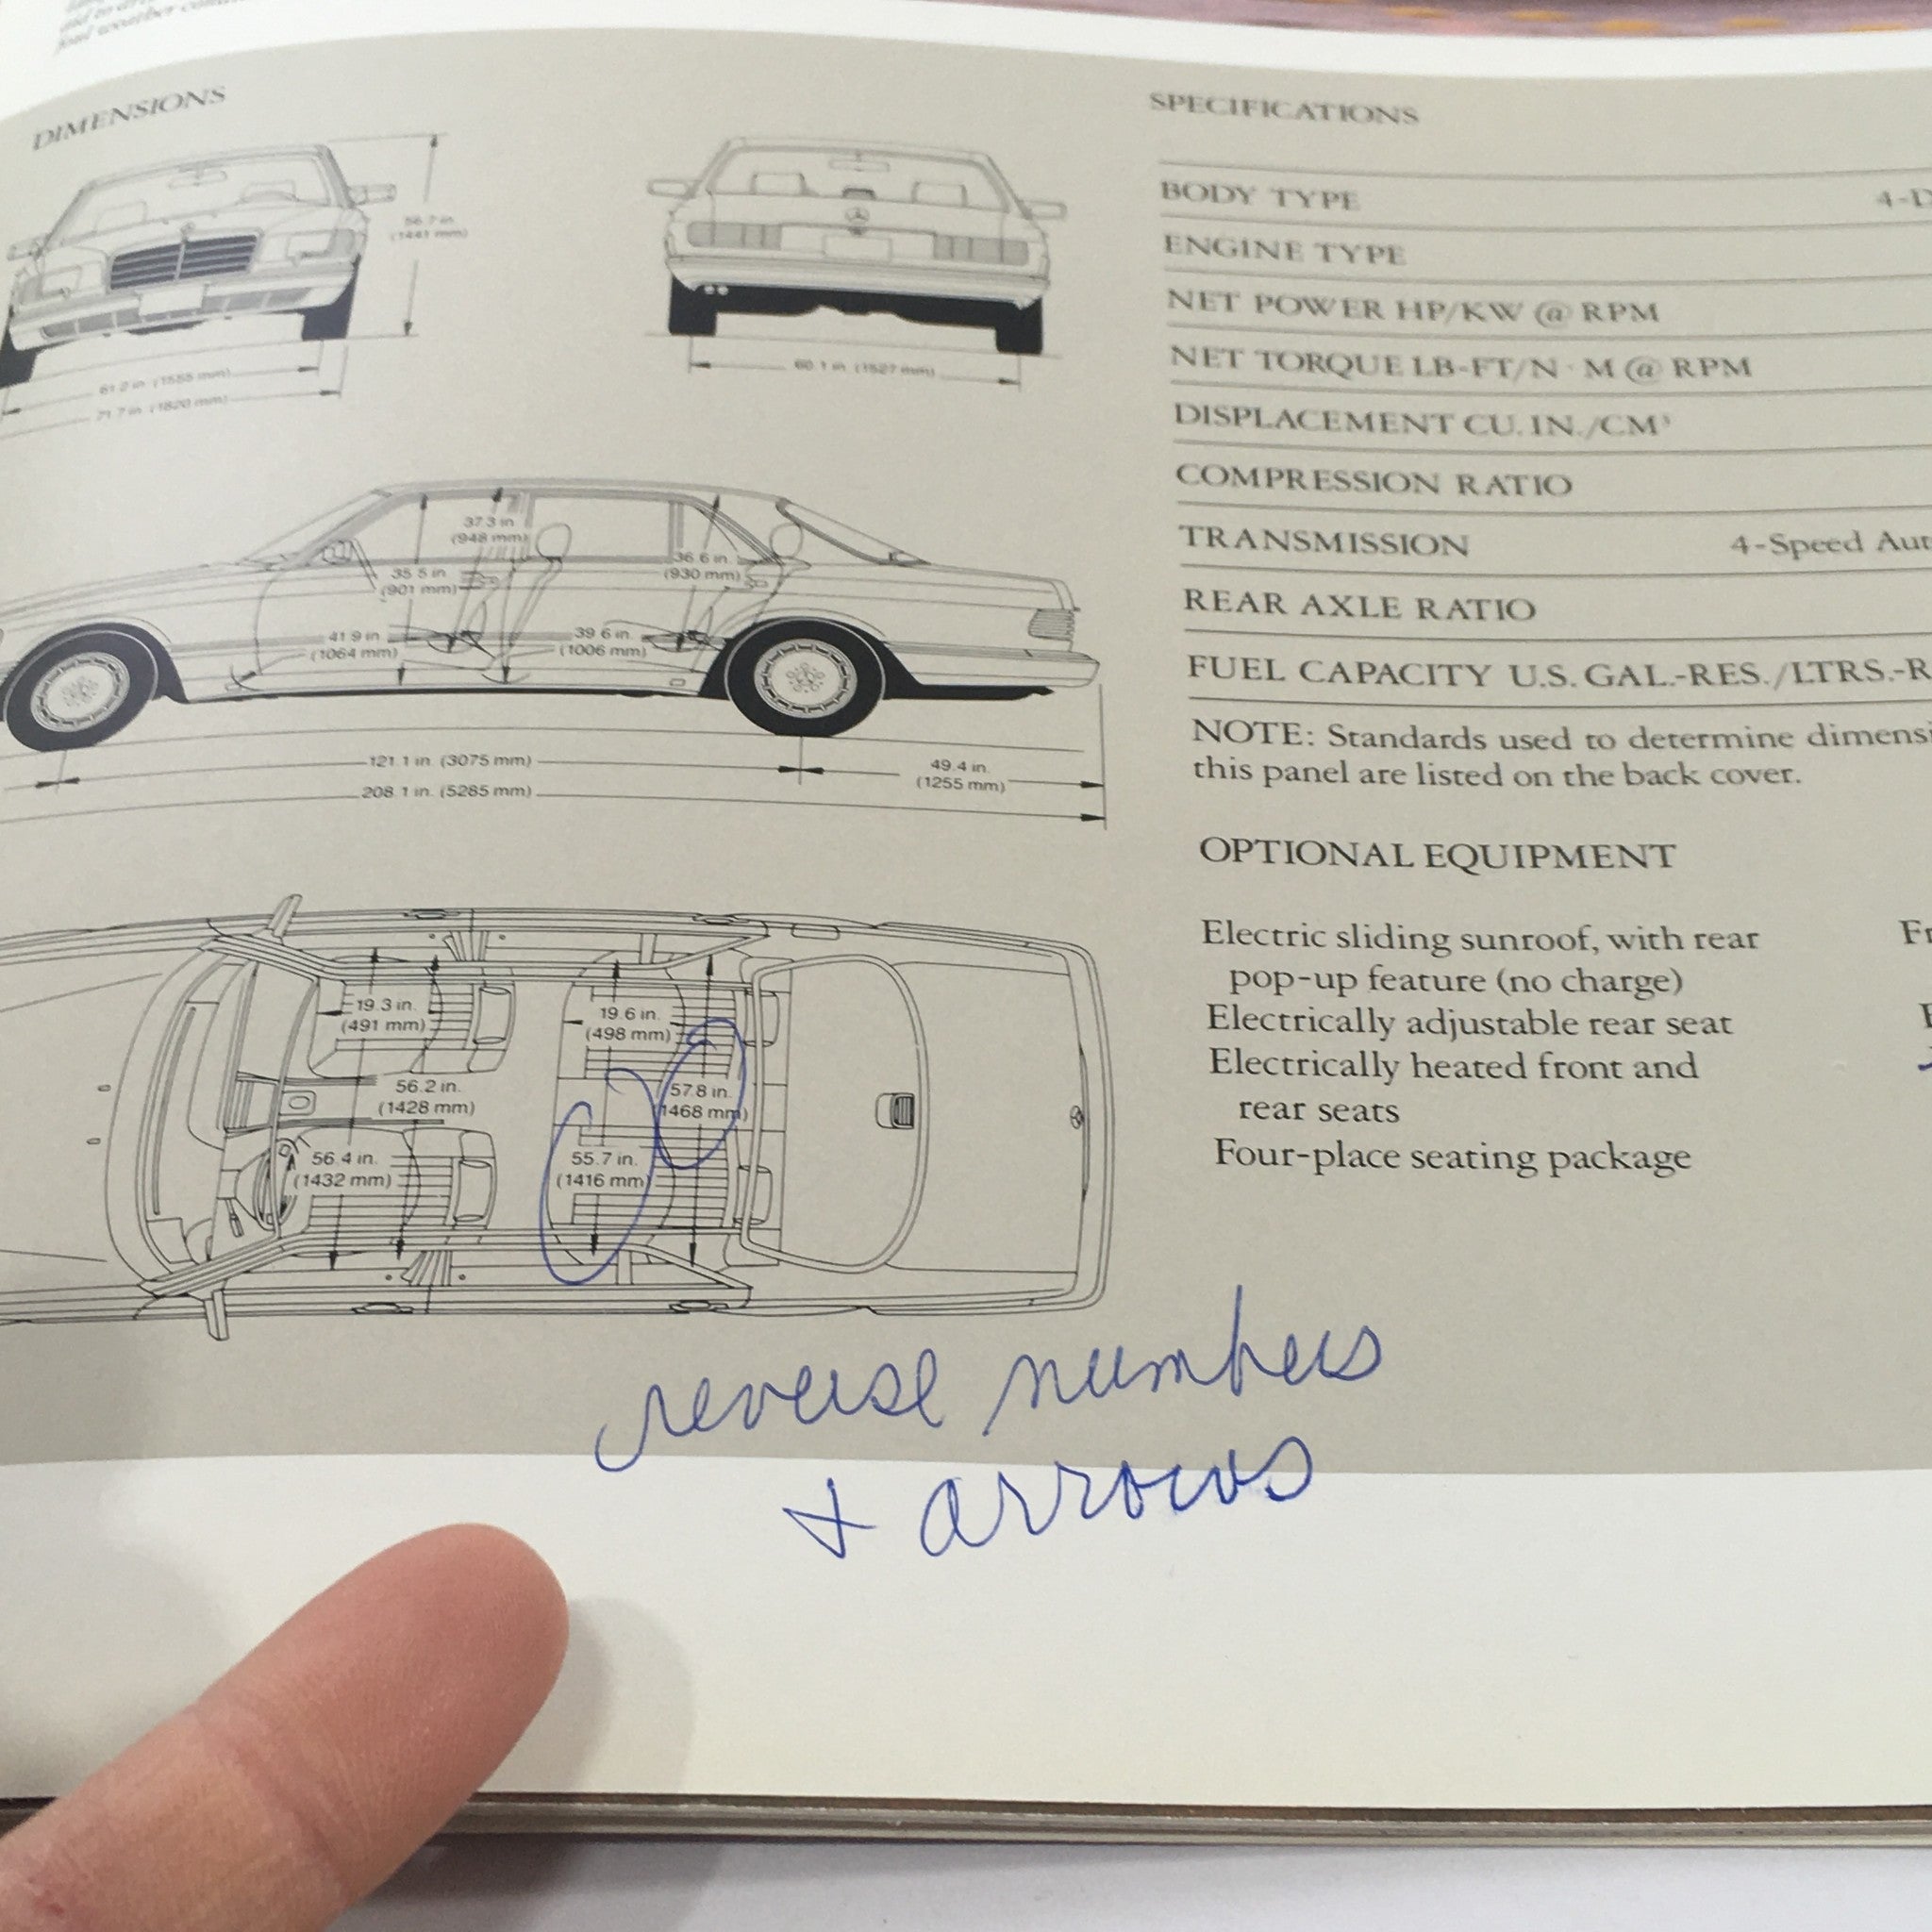 DIMENSIONS
56.7 in.
(1441 mm)
61.2 in. (1555 mm)
71.7 in. (1820 mm)
60.1 in. (1527 mm)
37.3 in.
(948 mm)
35.5 in.
(901 mm)
36.6 in.
(930 mm)
41.9 in.
(1064 mm)
39.6 in.
(1006 mm)
121.1 in. (3075 mm)
49.4 in.
(1255 mm)
208.1 in. (5285 mm)
19.3 in.
(491 mm)
19.6 in.
(498 mm)
56.2 in.
(1428 mm)
57.8 in.
(1468 mm)
56.4 in.
(1432 mm)
55.7 in.
(1416 mm)
reverse numbers
+ arrows
SPECIFICATIONS
BODY TYPE 4-D
ENGINE TYPE
NET POWER HP/KW @ RPM
NET TORQUE LB-FT/N·M @ RPM
DISPLACEMENT CU. IN./CM³
COMPRESSION RATIO
TRANSMISSION 4-Speed Aut
REAR AXLE RATIO
FUEL CAPACITY U.S. GAL.-RES./LTRS.-R
NOTE: Standards used to determine dimensi
this panel are listed on the back cover.
OPTIONAL EQUIPMENT
Electric sliding sunroof, with rear
pop-up feature (no charge)
Electrically adjustable rear seat
Electrically heated front and
rear seats
Four-place seating package